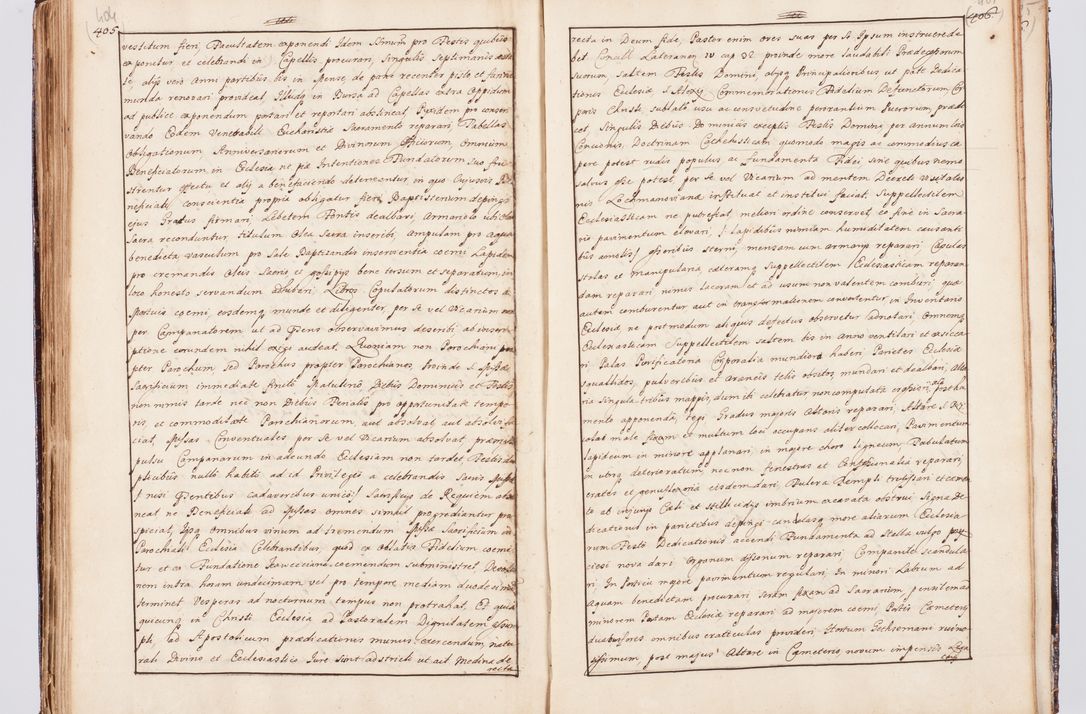 404
405
vestitum fieri, Facultatem exponendi Idem Stmum pro Festis quibus
exponetur et celebrandi in Capellis procurari, Singulis Septimanis
se, alijs vero Anni partibus bis in Mense, de pane recenter pisto et farina
munda renovari provideat, Illudq in Bursa ad Capellas extra Oppidum
ad publice exponendum portari et reportari abstineat, Pyxidem pro conser
vando Eodem Venerabili Eucharistiæ Sacramento reparari, Tabellas
Obligationum Anniversariorum et Divinorum Officiorum, omnium
Beneficiatorum in Ecclesia ne piæ Intentiones Fundatorum suo fru
strentur effectu et alij a benefaciendo deterreantur, in quo Cujusvis Be
neficiati conscientia propria obligatur fieri, Baptisterium depingi
ejus Gradus firmari, Lebetem Fontis dealbari, Armariolo ubi Olea
Sacra reconduntur, titulum Olea Sacra inscribi, ampulam pro aqua
benedicta vasculum pro Sale Baptizandis inservientia coemi, Lapidem
pro cremandis Oleis Sacris et gossipijs bene tersum et separatum, in
loco honesto servandum adhiberi, Libros Copulatorum distinctos a
Mortuis coemi, eosdemq munde et diligenter, per se vel Vicarium non
per Campanatorem ut ad præsens observavimus describi ab inscri
ptione eorundem nihil exigi audeat, Quoniam non Parochiani pro
pter Parochum sed Parochus propter Parochianos, Proinde S. Missæ
Sacrificium immediate finiti Matutino, Diebus Dominicis et Festis
non nimis tarde nec non Diebus Ferialis pro opportunitate tempo
ris, et commoditate Parochianorum, aut absolvat, aut absolvi fa
ciat, Missas Conventuales per se vel Vicarium absolvat, præmisso
pulsu Campanarum in adeundo Ecclesiam non tardet, Festis du
plicibus nulli habiti ad id Privilegij a celebrandis Sacris
! nisi Præsentibus cadaveribus unicis! Sacrificijs de Requiem absti
neat ne Beneficiati ad Missas omnes simul progrediantur pro
speciat, Ipsq omnibus vinum ad tremendum Missæ Sacrificium in
Parochiali Ecclesia Celebrantibus, quod ex oblatis Fidelium coemi
tur et ex Fundatione coemendum subministret Devotio
nem intra horam undecimam vel pro tempore mediam duodecimam
terminet Vesperas ad nocturnum tempus non protrahat, Et quia
quicunq in Christi Ecclesia ad Pastoralem Dignitatem
pti, ad Apostolicum prædicationis munus exercendum, natu
rali Divino et Ecclesiastico Jure sint adstricti ut ait Medina de
recta
406
recta in Deum fide, Pastor enim oves suas per se Ipsum instruere de
bet Concill Lateranen IV cap 32 proinde more laudabili Prædecessorum
suorum, saltem Festis Domini, alijsq Principalioribus ut puta Dedica
tionis Ecclesiæ, S Alexij Commemorationis Fidelium Defunctorum, Cor
poris Christi, sublata usu ac consvetudine perorantium Puerorum, præd
icet Singulis Diebus Dominicis exceptis Festis Domini per annum loco
Concionis, Doctrinam Cathehisticam quomodo magis ac commodius ca
pere potest rudis populus, ac Fundamenta Fidei sine quibus nemo
salvus esse potest per se vel Vicarium ad mentem Decreti Visitatio
nis Lochmanoviana instituat et institui faciat. Suppellectilem
Ecclesiasticam ne putrefiat, meliori ordine conservet, eo fine in Sacra
rio pavimentum elevari, ! Lapidibus nimiam humiditatem causanti
bus amotis! Asseribus sterni, mensam cum armarijs reparari, Casulas
stolas et manipularia, cæteramq Suppellectilem Ecclesiasticam reparan
dam reparari nimis laceram et ad usum non valentem comburi, quæ
autem comburentur aut in transformationem convertentur, in Inventario
Ecclesiæ, ne postmodum aliquis defectus observetur adnotari, Omnemq
Ecclesiasticam Suppellectilem saltem bis in anno ventilari et exsicca
ri, Palas Purificatoria Corporalia mundiora haberi Parietes Ecclesiæ
squallidos, pulveribus et Aranæis telis obsitos, mundari et dealbari, Alta
ria Singula tribus mappis, dum ibi celebratur non computata crispiori, præcha
mento apponendâ, tegi Gradus majoris Altaris reparari, Altare S. Ny
colai male fixam et multum loci occupans aliter collocari, Pavimentum
lapideum in minore applanari, in majore choro Ligneum Tabulatum
in utroq deterioratum, nec non fenestras et Confessionalia reparari,
crates et genuflexoria eisdem dari, Fulera Templi trulissari et cæmen
to ab injurijs Cæli et Stillicidijs imbrium excavata obstrui, Signa De
dicationis in parietibus depingi candelasq more aliarum Ecclesia
rum Festo Dedicationis accendi Fundamenta ad Stalla vulgo
ciosi nova dari Organum dissonum reparari Campanile scandula
ri, In Porticu majore pavimentum regulari, In minori Labrum ad
Aquam benedictam procurari Seram fixam ad Sacrarium, penulamq
minorem Portam Ecclesiæ reparari ad majorem coemi, Portis Cæmeterij
duabus fores omnibus craticulas provideri Hortum Gethsemani ruino
sissimum, post majus Altare in Cæmeterio, novum impensis